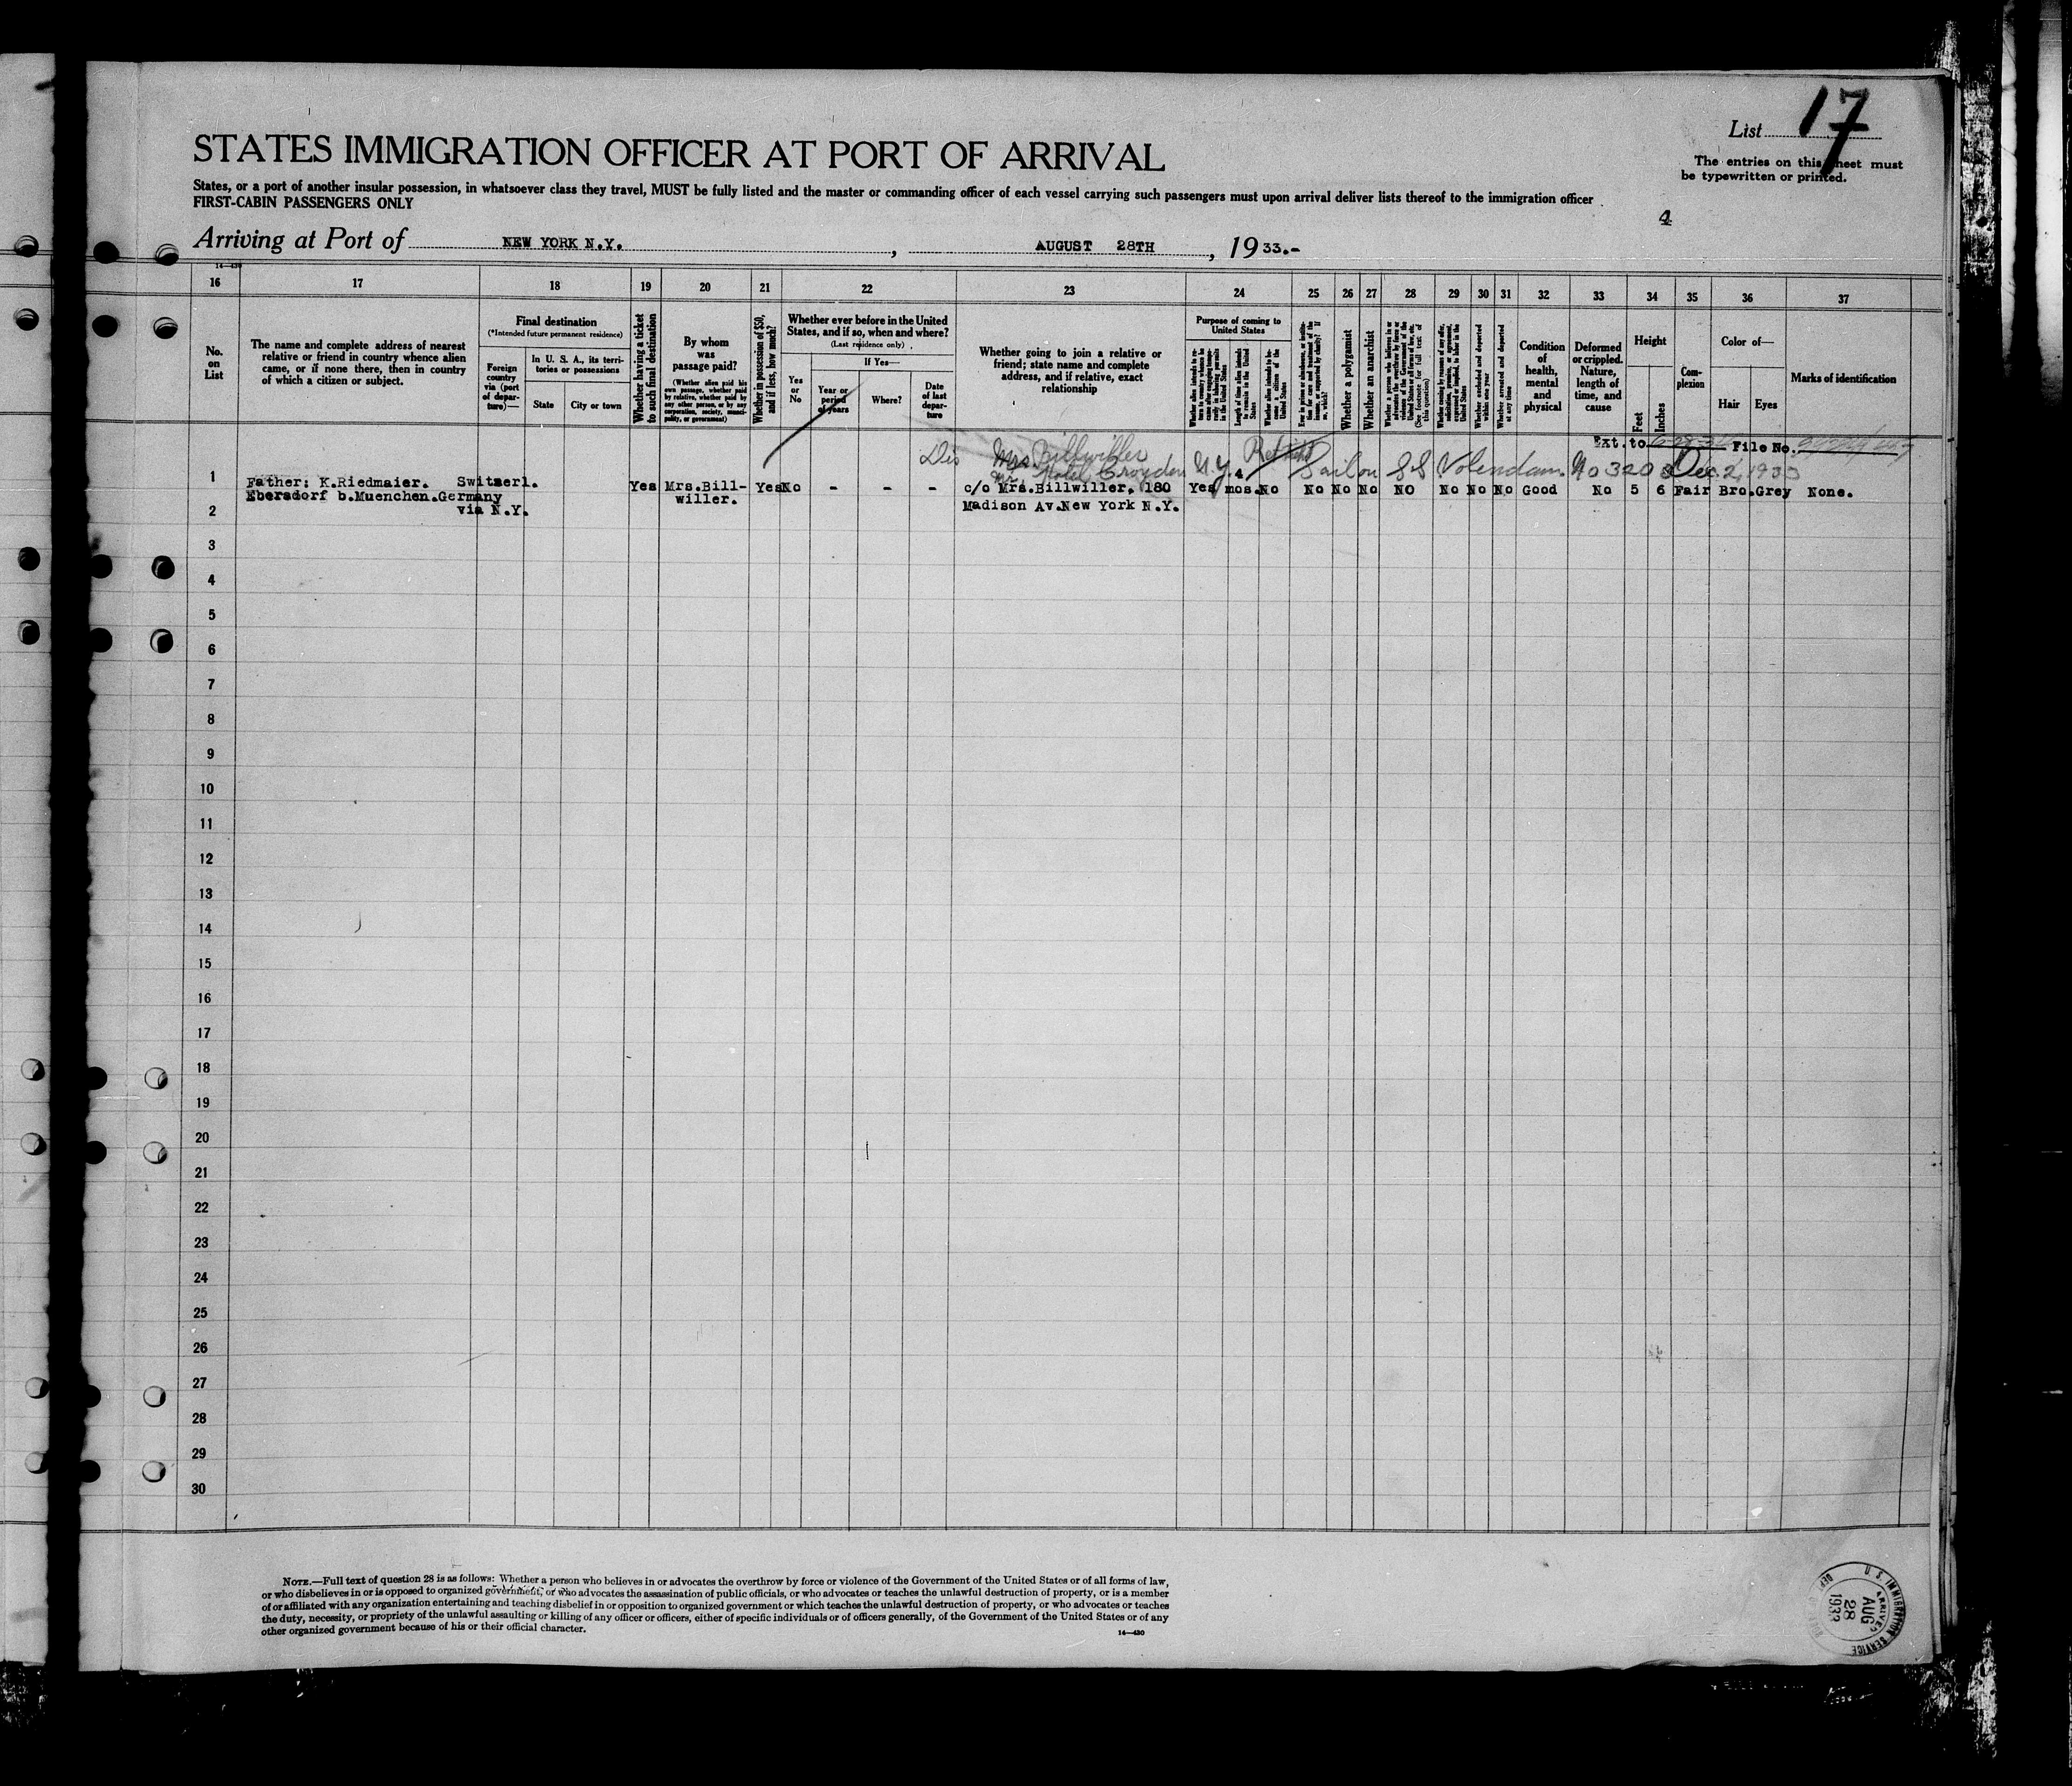 List 17
STATES IMMIGRATION OFFICER AT PORT OF ARRIVAL
The entries on this sheet must
be typewritten or printed.
States, or a port of another insular possession, in whatsoever class they travel, MUST be fully listed and the master or commanding officer of each vessel carrying such passengers must upon arrival deliver lists thereof to the immigration officer
FIRST-CABIN PASSENGERS ONLY
4
Arriving at Port of NEW YORK N.Y., AUGUST 28TH, 1933.-
16 17 18 19 20 21 22 23 24 25 26 27 28 29 30 31 32 33 34 35 36 37
No. on List
The name and complete address of nearest
relative or friend in country whence alien
came, or if none there, then in country
of which a citizen or subject.
Final destination
(*Intended future permanent residence)
Foreign country via (port of departure)—
In U. S. A., its territories or possessions
State
City or town
Whether having a ticket to such final destination
By whom was passage paid?
(Whether alien paid his own passage, whether paid by relative, whether paid by any other person, or by any corporation, society, municipality, or government)
Whether in possession of $50, and if less, how much?
Whether ever before in the United States, and if so, when and where?
(Last residence only)
Yes or No
If Yes—
Year or period of years
Where?
Date of last departure
Whether going to join a relative or
friend; state name and complete
address, and if relative, exact
relationship
Purpose of coming to United States
Length of time alien intends to remain in the United States
Whether alien intends to become a citizen of the United States
Whether a polygamist
Whether an anarchist
(See footnote for full text of this question)
Whether excluded and deported within one year
Whether arrested and deported at any time
Condition of health, mental and physical
Deformed or crippled. Nature, length of time, and cause
Height
Feet
Inches
Complexion
Color of—
Hair
Eyes
Marks of identification
Ext. to File No.
Dis Mrs. Billwiller
Hotel Croydon N.Y. Sail on SS Volendam. No 320 Dec. 2, 1933
1 Father: K.Riedmaier. Switzerl. Yes Mrs.Bill- Yes No - - - c/o Mrs.Billwiller, 180 Yes 4 mos. No No No No NO No No No Good No 5 6 Fair Bro. Grey None.
Ebersdorf b.Muenchen.Germany willer. Madison Av.New York N.Y.
via N.Y.
2
3
4
5
6
7
8
9
10
11
12
13
14
15
16
17
18
19
20
21
22
23
24
25
26
27
28
29
30
NOTE.—Full text of question 28 is as follows: Whether a person who believes in or advocates the overthrow by force or violence of the Government of the United States or of all forms of law,
or who disbelieves in or is opposed to organized government, or who advocates the assassination of public officials, or who advocates or teaches the unlawful destruction of property, or is a member
of or affiliated with any organization entertaining and teaching disbelief in or opposition to organized government or which teaches the unlawful destruction of property, or who advocates or teaches
the duty, necessity, or propriety of the unlawful assaulting or killing of any officer or officers, either of specific individuals or of officers generally, of the Government of the United States or of any
other organized government because of his or their official character.
14—430
U. S. IMMIGRATION SERVICE
ARRIVED
AUG
28
1933